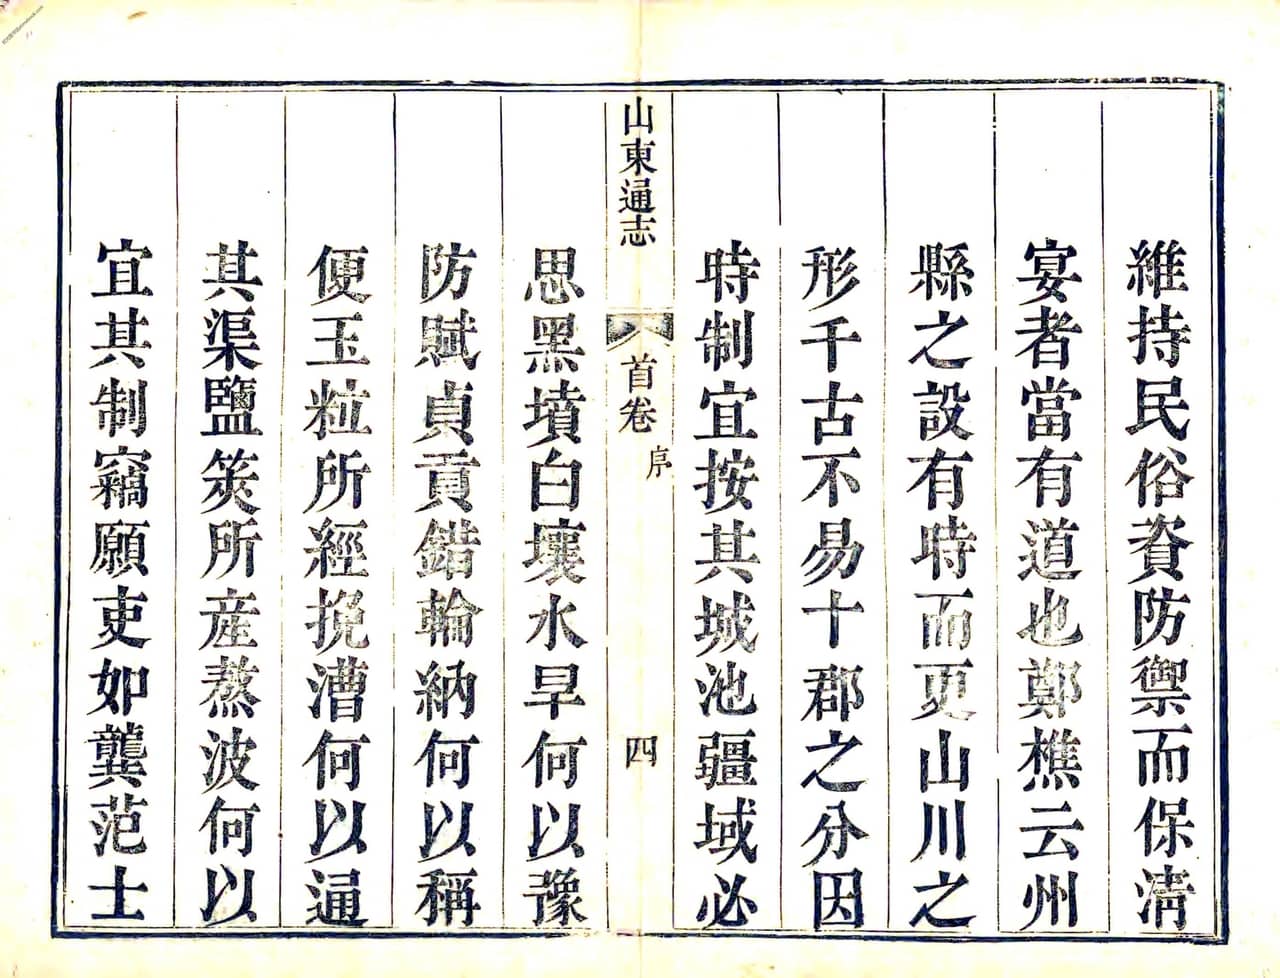 維持民俗資防禦而保淸
宴者當有道也鄭樵云州
縣之設有時而更山川之
形千古不易十郡之分因
時制宜按其城池疆域必
山東通志
首卷
序
四
思黑墳白壤水旱何以豫
防賦貞貢錯輪納何以稱
便玉粒所經挽漕何以通
其渠鹽筴所産蒸波何以
宜其制竊願吏如龔范士